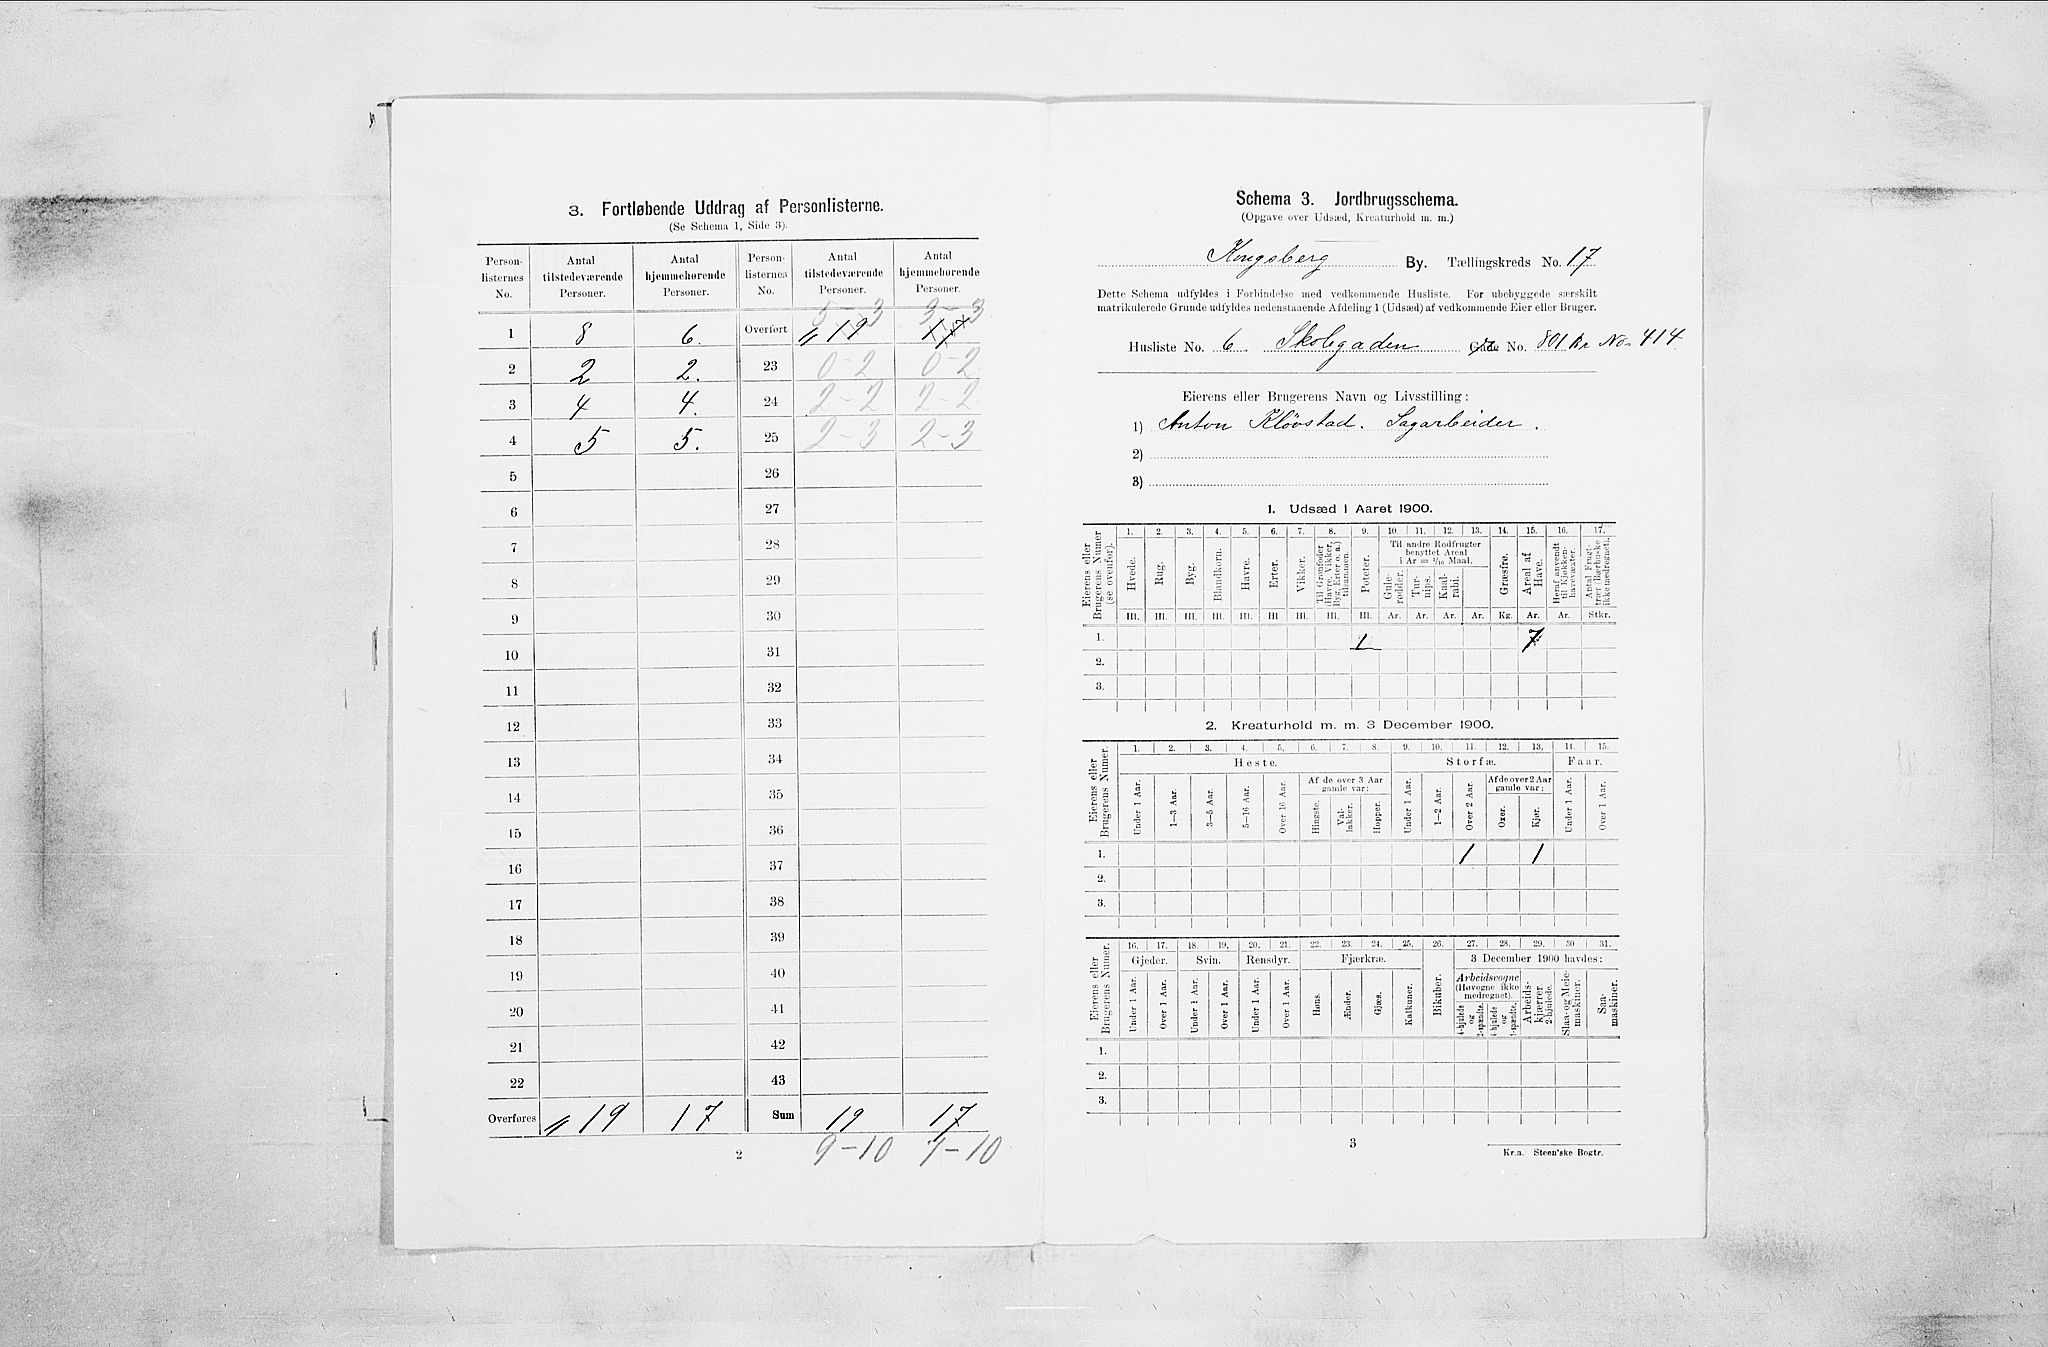 3. Fortløbende Uddrag af Personlisterne.
(Se Schema 1, Side 3).
Person-listernes No. Antal tilstedeværende Personer. Antal hjemmehørende Personer. Person-listernes No. Antal tilstedeværende Personer. Antal hjemmehørende Personer.
5-3 3-3
1 8 6. Overført 〃 19 17
2 2 2. 23 0-2 0-2
3 4 4. 24 2-2 2-2
4 5 5. 25 2-3 2-3
5 26
6 27
7 28
8 29
9 30
10 31
11 32
12 33
13 34
14 35
15 36
16 37
17 38
18 39
19 40
20 41
21 42
22 43
Overføres 〃 19 17 Sum 19 17
9-10 7-10
2
Schema 3. Jordbrugsschema.
(Opgave over Udsæd, Kreaturhold m. m.)
Kongsberg By. Tællingskreds No. 17
Dette Schema udfyldes i Forbindelse med vedkommende Husliste. For ubebyggede særskilt
matrikulerede Grunde udfyldes nedenstaaende Afdeling 1 (Udsæd) af vedkommende Eier eller Bruger.
Husliste No. 6 Skolegaden Gade No. 801 Br No 414
Eierens eller Brugerens Navn og Livsstilling:
1) Anton Kløvstad. Sagarbeider.
2)
3)
1. Udsæd i Aaret 1900.
Eierens eller Brugerens Numer (se ovenfor).
1. 2. 3. 4. 5. 6. 7. 8. 9. 10. 11. 12. 13. 14. 15. 16. 17.
Hvede. Rug. Byg. Blandkorn. Havre. Erter. Vikker. Til Grønfoder (Havre, Vikker, Byg, Erter o. a.) tilsammen. Poteter. Til andre Rodfrugter benyttet Areal i Ar = 1/10 Maal. Gule-rødder. Tur-nips. Kaal-rabi. Græsfrø. Areal af Have. Heraf anvendt til Kjøkken-havevæxter. Antal Frugt-trær (Bærbuske ikke medregnet).
Hl. Hl. Hl. Hl. Hl. Hl. Hl. Hl. Hl. Ar. Ar. Ar. Ar. Kg. Ar. Ar. Stkr.
1. 1 7
2.
3.
2. Kreaturhold m. m. 3 December 1900.
Eierens eller Brugerens Numer.
1. 2. 3. 4. 5. 6. 7. 8. 9. 10. 11. 12. 13. 14. 15.
Heste. Storfæ. Faar.
Af de over 3 Aar gamle var: Af de over 2 Aar gamle var:
Under 1 Aar. 1—3 Aar. 3—5 Aar. 5—16 Aar. Over 16 Aar. Hingste. Val-lakker. Hopper. Under 1 Aar. 1—2 Aar. Over 2 Aar. Oxer. Kjør. Under 1 Aar. Over 1 Aar.
1. 1 1
2.
3.
Eierens eller Brugerens Numer.
16. 17. 18. 19. 20. 21. 22. 23. 24. 25. 26. 27. 28. 29. 30 31.
Gjeder. Svin. Rensdyr. Fjærkræ. Bikuber. 3 December 1900 havdes:
Under 1 Aar. Over 1 Aar. Under 1 Aar. Over 1 Aar. Under 1 Aar. Over 1 Aar. Høns. Ænder. Gjæs. Kalkuner. Arbeidsvogne (Høvogne ikke medregnet). 4-hjulede og 2-spændte. 4-hjulede og 1-spændte. Arbeids-kjærrer 2-hjulede. Slaa- og Meie-maskiner. Saa-maskiner.
1.
2.
3.
3
Kr.a. Steen'ske Bogtr.